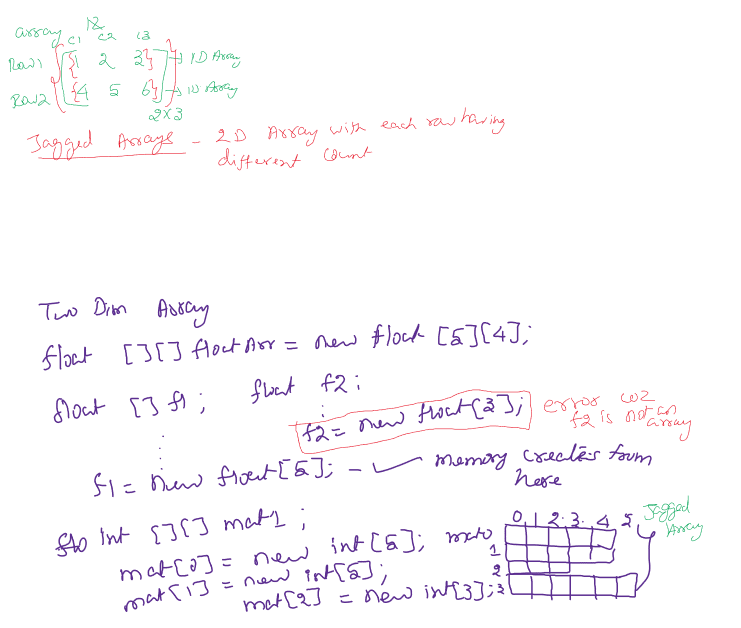 array
C1 C2 C3
Row1 {{1 2 3} → 1D Array
Row2 {4 5 6}} → 1D Array
2x3
Jagged Arrays - 2D Array with each row having
different count
Two Dim Array
float [][] floatArr = new float [5][4];
float [] f1; float f2;
f2 = new float[3]; error coz
f2 is not an
array
f1 = new float[5]; - memory creates from
here
int [][] mat1;
mat[0] = new int[5];
mat[1] = new int[5];
mat[2] = new int[3];
0 1 2 3 4 5
1
2
3
Jagged
Array